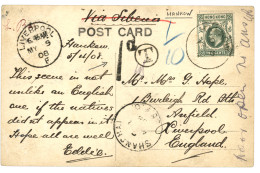 Via Siberia
HANKOW
POST CARD
LIVERPOOL
MY 9
08
HONG KONG
T
10
Hankow
This scene is not
unlike an English
one if the natives
did not appear in it
Hope all are well
Eddie.
Mr. G. Hope,
1 Burleigh Rd Sth
Anfield
Liverpool
England.
SHANGHAI